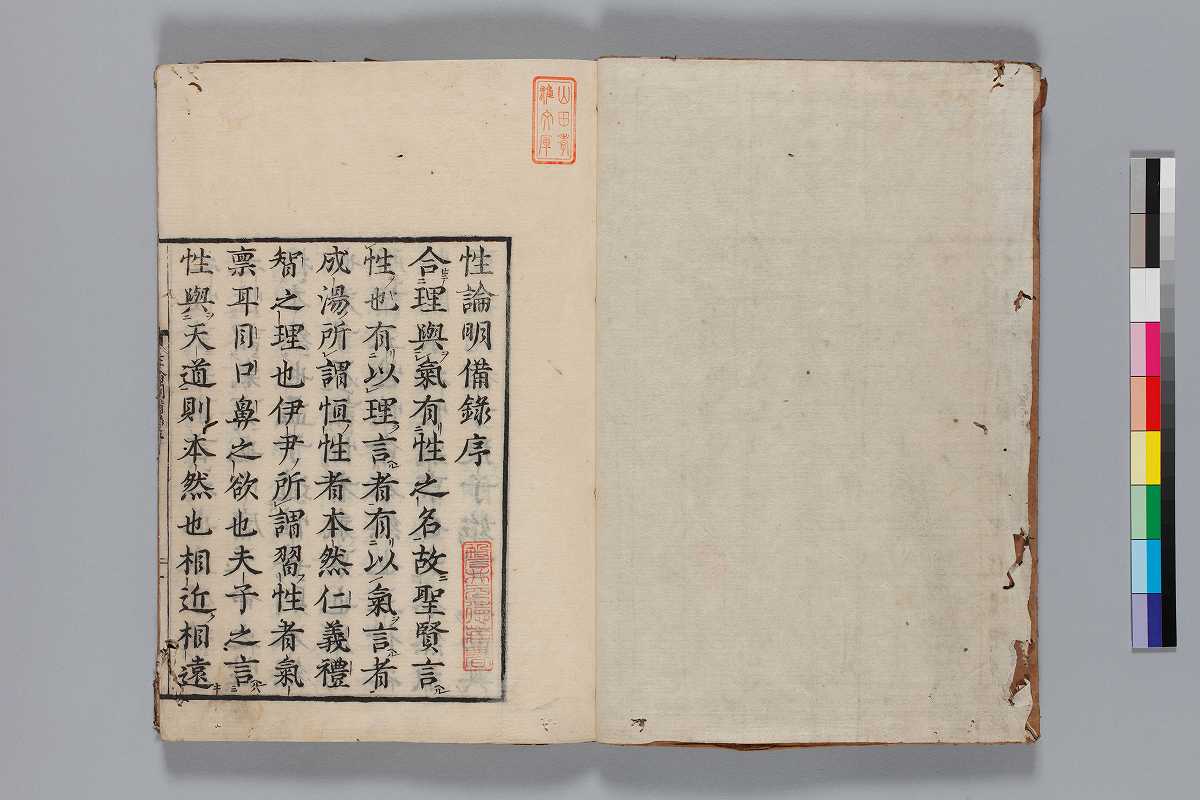 性論明備錄序
合理與氣有性之名故聖賢言
性也有以理言者有以氣言者
成湯所謂恒性者本然仁義禮
智之理也伊尹所謂習性者氣
禀耳目口鼻之欲也夫子之言
性與天道則本然也相近相遠
山田
文庫